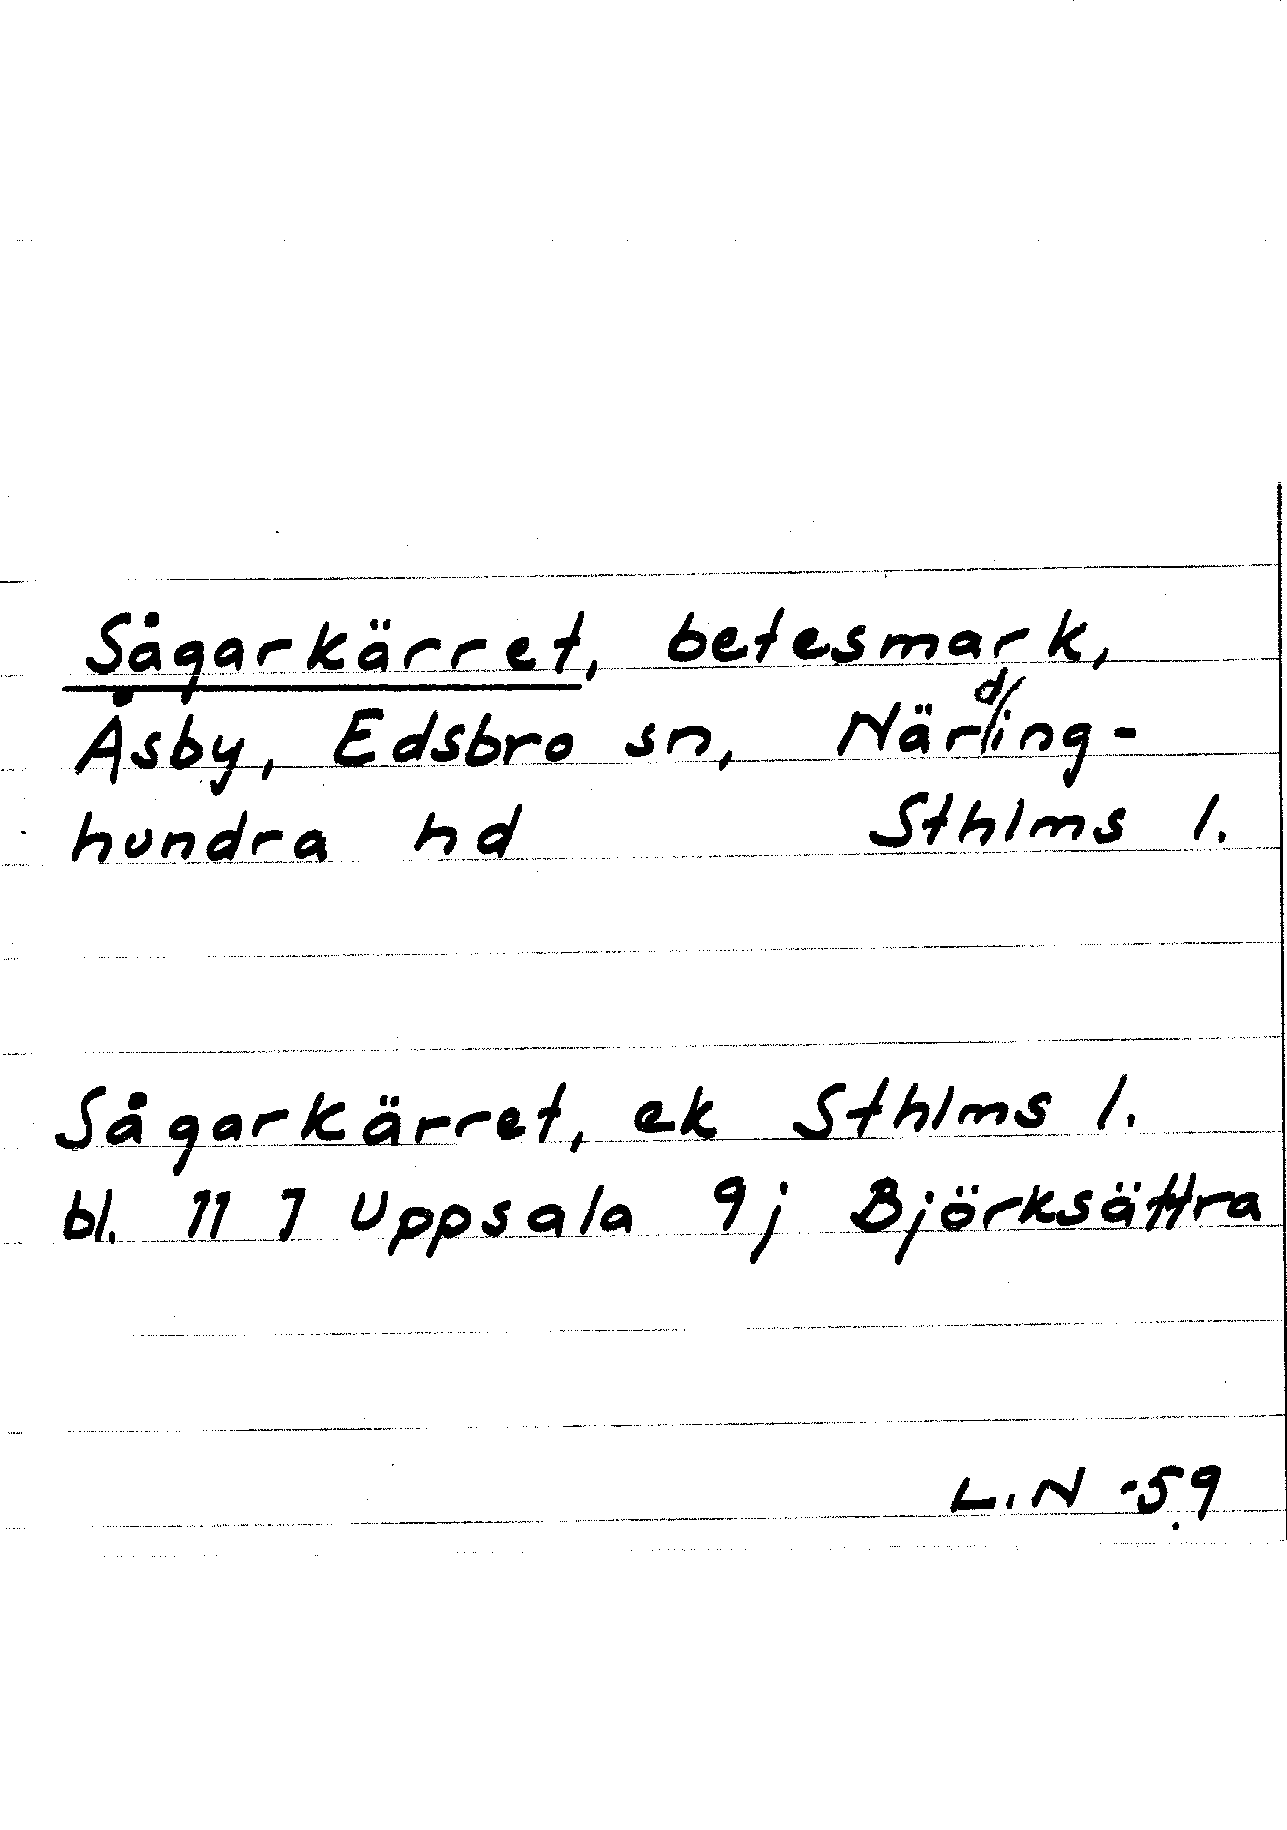 Sågarkärret, betesmark,
Åsby, Edsbro sn, Närding-
hundra hd Sthlms l.
Sågarkärret, ek Sthlms l.
bl. 11 J Uppsala 9j Björksättra
L.N -59